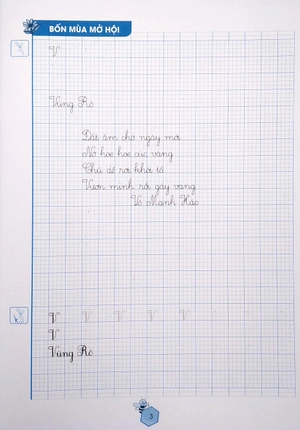 BỐN MÙA MỞ HỘI
V
Vũng Rô
Đất ấm cho ngày mới
Nở hoe hoe cúc vàng
Chú dế rời khỏi tổ
Vươn mình rồi gáy vang
Võ Mạnh Hảo
V V V V V
V
Vũng Rô
3